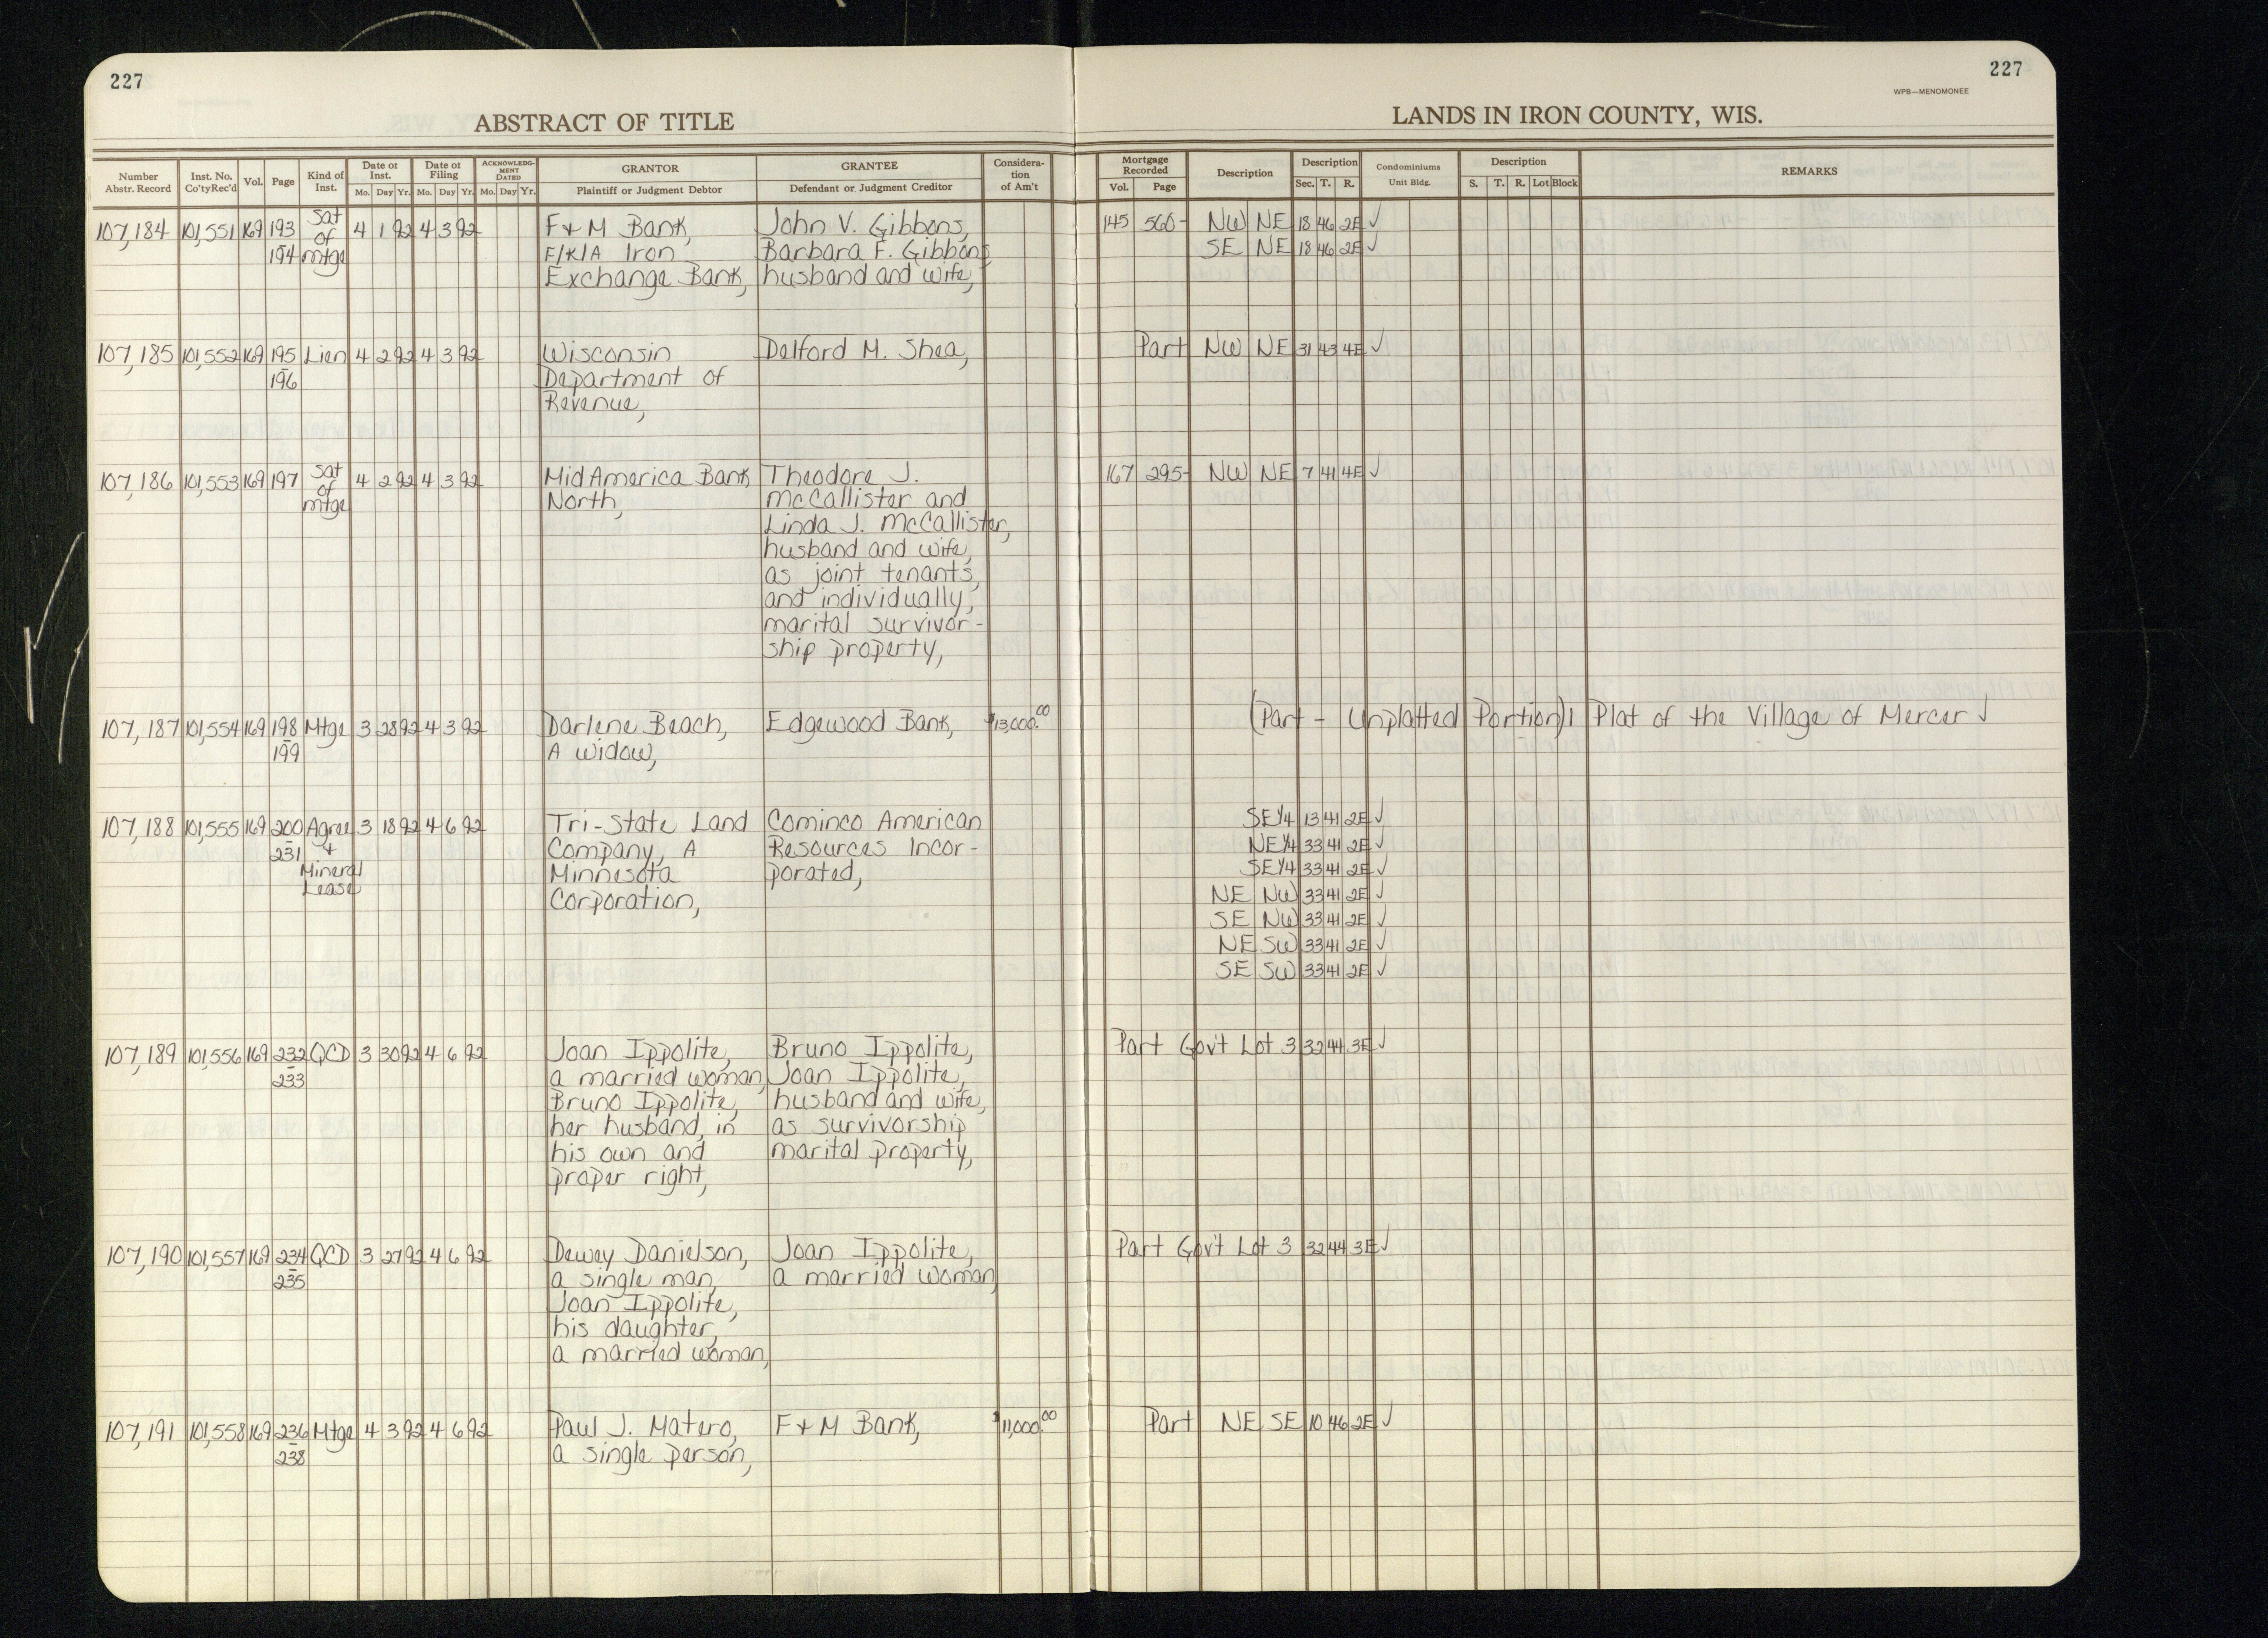 227
227
WPB—MENOMONEE
ABSTRACT OF TITLE
LANDS IN IRON COUNTY, WIS.
Number Abstr. Record | Inst. No. Co'tyRec'd | Vol. | Page | Kind of Inst. | Date of Inst. Mo. Day Yr. | Date of Filing Mo. Day Yr. | ACKNOWLEDGMENT DATED Mo. Day Yr. | GRANTOR Plaintiff or Judgment Debtor | GRANTEE Defendant or Judgment Creditor | Considera-tion of Am't | Mortgage Recorded Vol. Page | Description | Description Sec. T. R. | Condominiums Unit Bldg. | Description S. T. R. Lot Block | REMARKS
107,184 101,551 169 193 Sat 4 1 92 4 3 92 F & M Bank, John V. Gibbons, 145 560- NW NE 18 46 2E ✓
194 of mtge F/K/A Iron Barbara F. Gibbons SE NE 18 46 2E ✓
Exchange Bank, husband and wife,
107,185 101,552 169 195 Lien 4 2 92 4 3 92 Wisconsin Delford M. Shea, Part NW NE 31 43 4E ✓
196 Department of
Revenue,
107,186 101,553 169 197 Sat 4 2 92 4 3 92 MidAmerica Bank Theodore J. 167 295- NW NE 7 41 4E ✓
of mtge North, McCallister and
Linda J. McCallister,
husband and wife,
as joint tenants,
and individually,
marital survivor-
ship property,
107,187 101,554 169 198 Mtge 3 28 92 4 3 92 Darlene Beach, Edgewood Bank, $13,000.00 (Part - Unplatted Portion) 1 Plat of the Village of Mercer ✓
199 A widow,
107,188 101,555 169 200 Agree 3 18 92 4 6 92 Tri-State Land Cominco American SE1/4 13 41 2E ✓
231 + Company, A Resources Incor- NE1/4 33 41 2E ✓
Mineral Minnesota porated, SE1/4 33 41 2E ✓
Lease Corporation, NE NW 33 41 2E ✓
SE NW 33 41 2E ✓
NE SW 33 41 2E ✓
SE SW 33 41 2E ✓
107,189 101,556 169 232 QCD 3 30 92 4 6 92 Joan Ippolite, Bruno Ippolite, Part Gov't Lot 3 32 44 3E ✓
233 a married woman, Joan Ippolite,
Bruno Ippolite, husband and wife,
her husband, in as survivorship
his own and marital property,
proper right,
107,190 101,557 169 234 QCD 3 27 92 4 6 92 Dewey Danielson, Joan Ippolite, Part Gov't Lot 3 32 44 3E ✓
235 a single man, a married woman,
Joan Ippolite,
his daughter,
a married woman,
107,191 101,558 169 236 Mtge 4 3 92 4 6 92 Paul J. Matero, F & M Bank, $11,000.00 Part NE SE 10 46 2E ✓
238 a single person,